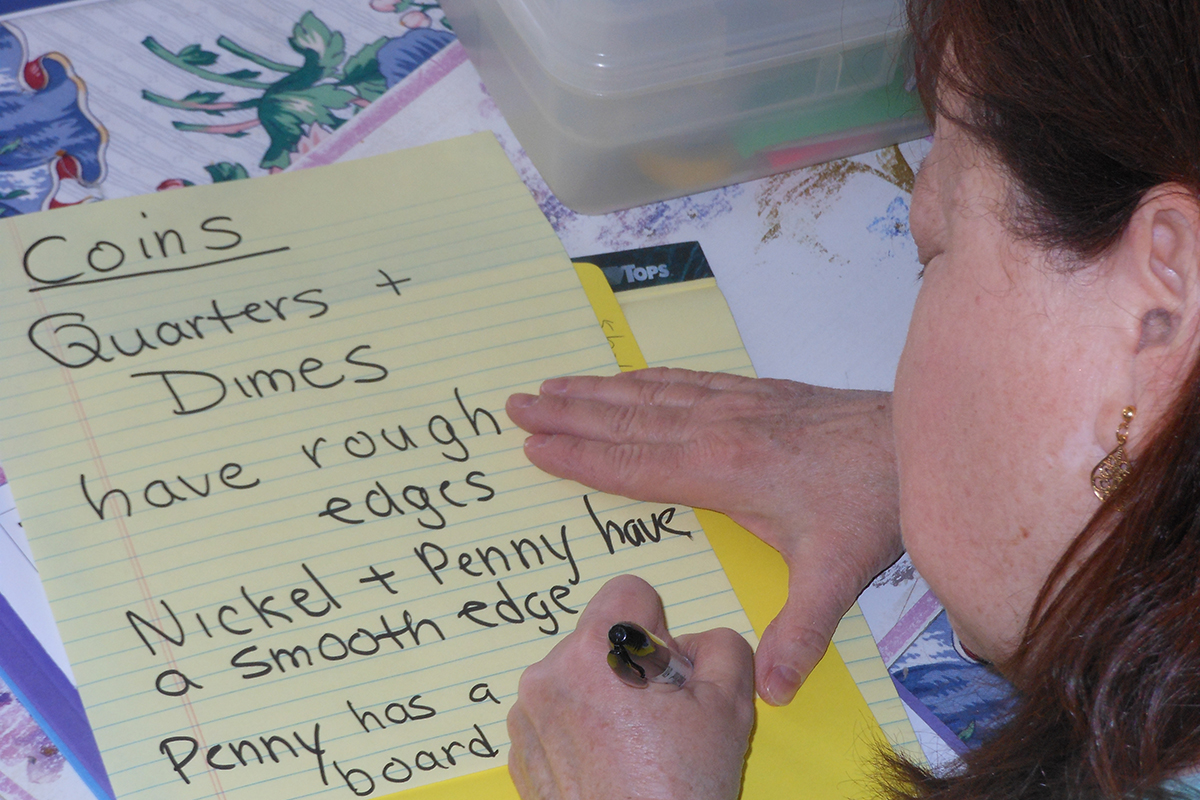 Coins
Quarters +
Dimes
have rough
edges
Nickel + Penny have
a smooth edge
Penny has a
board
TOPS